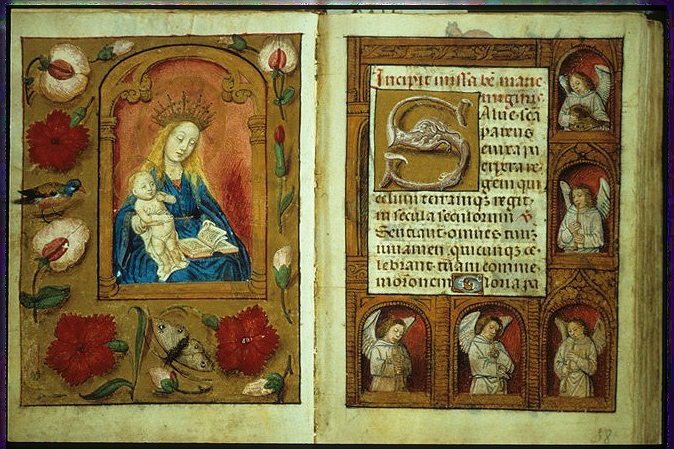 Incipit missa bē marie
uirginis
Salue sc̄a
parens
enixa pu
erpera re
gem qui
celum terramq̄ regit
in secula seculorum v̄
Sentiant omnes tuū
iuuamen quicunq̄ ce
lebrant tuam comme
morōnem Gloria pa
38